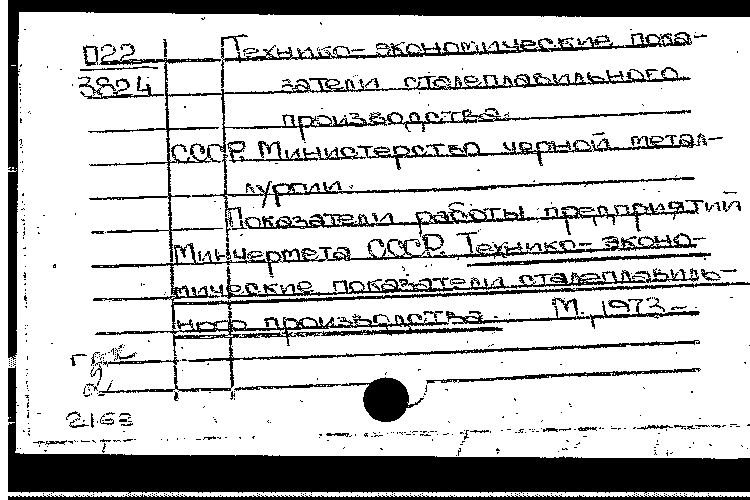 П22 Технико-экономические пока-
3824 затели сталеплавильного
производства.
СССР. Министерство черной метал-
лургии.
Показатели работы предприятий
Минчермета СССР. Технико-эконо-
мические показатели сталеплавиль-
ного производства. М., 1973-
2
2162